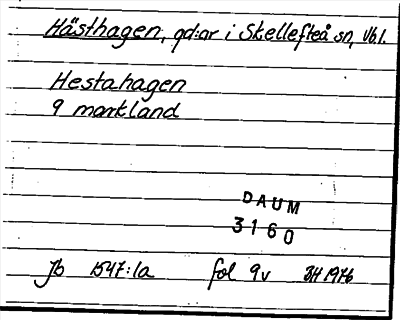 Hästhagen, gd:ar i Skellefteå sn, Vb.l.
Hestahagen
9 markland
DAUM
3160
Jb 1547:1a fol 9v BH 1976